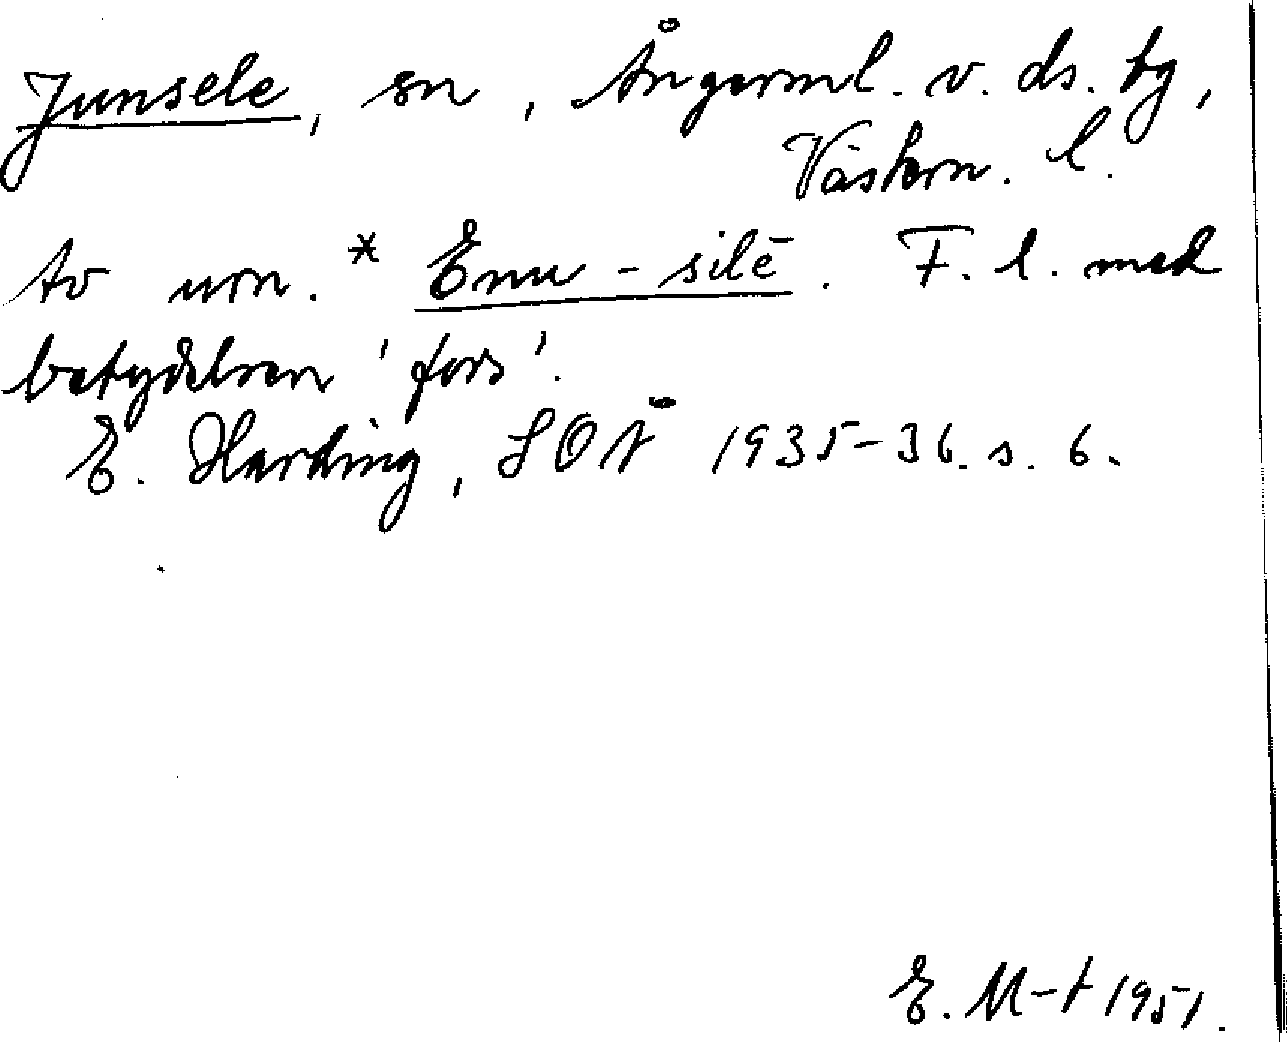 Junsele, sn, Ångerml. v. ds. tg,
Västern. l.
Av urn. * Emu - silē. F. l. med
betydelsen 'fors'.
E. Harding, SOÅ 1935-36. s. 6.
E. M-t 1951.